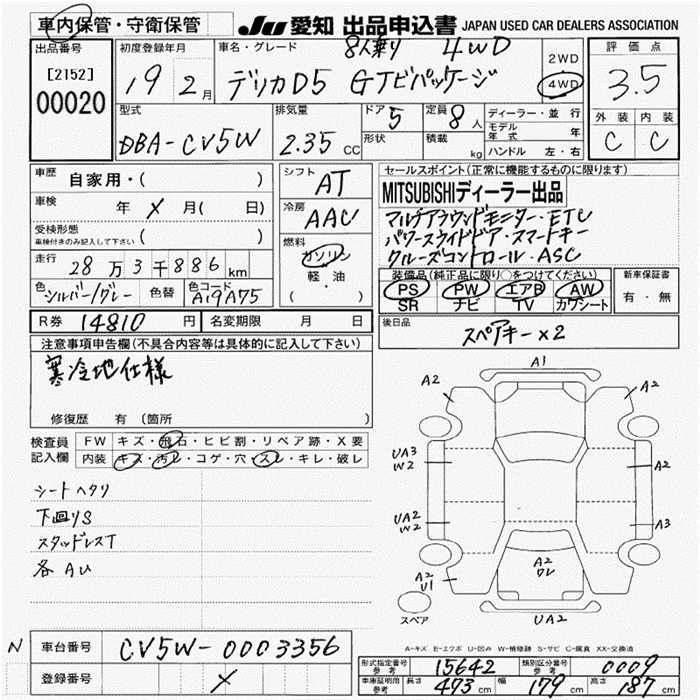 車内保管・守衛保管
JU 愛知 出品申込書 JAPAN USED CAR DEALERS ASSOCIATION
出品番号
[2152]
00020
初度登録年月
19 2月
車名・グレード
8人乗り 4WD
デリカD5 Gナビパッケージ
2WD
4WD
評価点
3.5
外装 内装
C C
型式
DBA-CV5W
排気量
2.35 CC
ドア 5
形状
定員 8人
積載 kg
ディーラー・並行
モデル年式 年
ハンドル 左・右
車歴 自家用・( )
車検 年 X 月( 日)
受検形態
車検付きのみ記入して下さい ( )
走行 28万3千886km
色 シルバー/グレー 色替 色コード A19A75
シフト AT
冷房 AAC
燃料
ガソリン
軽・油
( )
セールスポイント(正常に機能するものに限ります)
MITSUBISHIディーラー出品
マルチアラウンドモニター・ETC
パワースライドドア・スマートキー
クルーズコントロール・ASC
装備品(純正品に限り○をつけてください)
PS PW エアB AW
SR ナビ TV カワシート
新車保証書
有・無
R券 14810円 名変期限 月 日
後日品
スペアキー×2
注意事項申告欄(不具合内容等は具体的に記入して下さい)
寒冷地仕様
修復歴 有 (箇所 )
検査員記入欄
FW キズ・飛石・ヒビ割・リペア跡・X要
内装 キズ・汚レ・コゲ・穴・スレ・キレ・破レ
シートヘタリ
下回りS
スタッドレスT
各AU
A1
A2
A2
UA3
W2
A2
UA2
W2
A3
A2
U1
A2
ワレ
UA2
スペア
A-キズ E-エクボ U-凹み W-補修跡 S-サビ C-腐食 XX-交換済
N
車台番号 CV5W-0003356
登録番号 X
形式指定番号 参考 15642 類別区分番号 参考 0009
車庫証明用 参考 長さ 473cm 幅 179cm 高さ 187cm